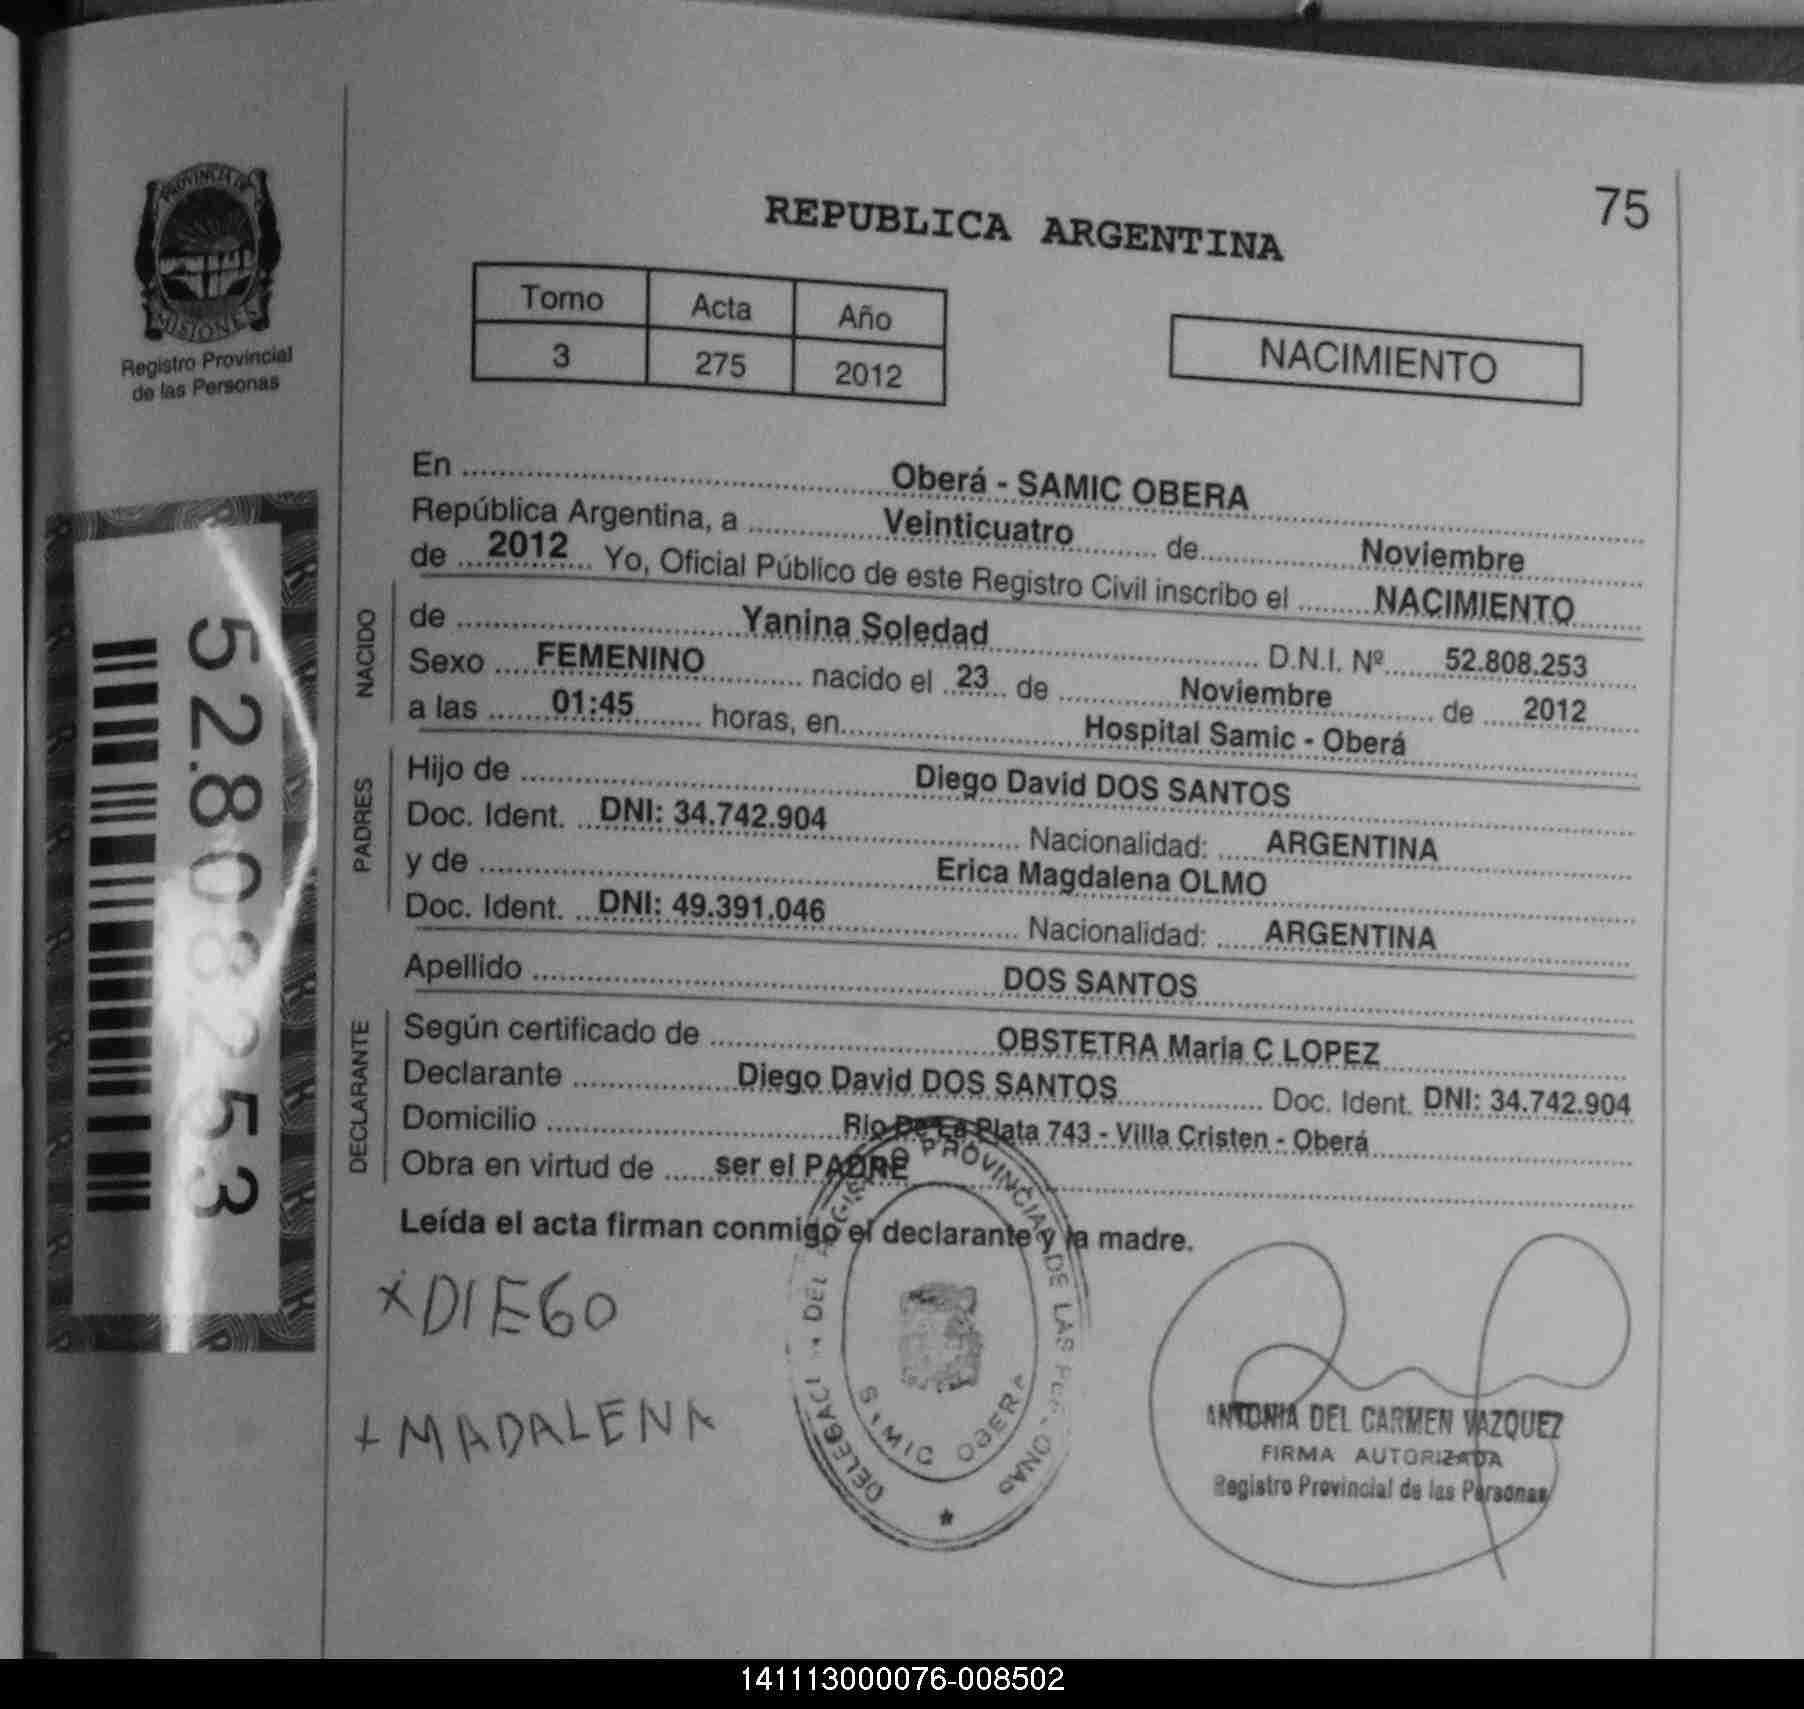 75
REPUBLICA ARGENTINA
PROVINCIA DE
MISIONES
Registro Provincial
de las Personas
Tomo Acta Año
3 275 2012
NACIMIENTO
52.808.253
En Oberá - SAMIC OBERA
República Argentina, a Veinticuatro de Noviembre
de 2012 Yo, Oficial Público de este Registro Civil inscribo el NACIMIENTO
NACIDO
de Yanina Soledad D.N.I. Nº 52.808.253
Sexo FEMENINO nacido el 23 de Noviembre de 2012
a las 01:45 horas, en Hospital Samic - Oberá
PADRES
Hijo de Diego David DOS SANTOS
Doc. Ident. DNI: 34.742.904 Nacionalidad: ARGENTINA
y de Erica Magdalena OLMO
Doc. Ident. DNI: 49.391.046 Nacionalidad: ARGENTINA
Apellido DOS SANTOS
DECLARANTE
Según certificado de OBSTETRA Maria C LOPEZ
Declarante Diego David DOS SANTOS Doc. Ident. DNI: 34.742.904
Domicilio Rio De La Plata 743 - Villa Cristen - Oberá
Obra en virtud de ser el PADRE
Leída el acta firman conmigo el declarante y la madre.
x DIEGO
+ MADALENA
PROVINCIAL DE LAS
SAMIC OBERA
ANTONIA DEL CARMEN VAZQUEZ
FIRMA AUTORIZADA
Registro Provincial de las Personas
141113000076-008502